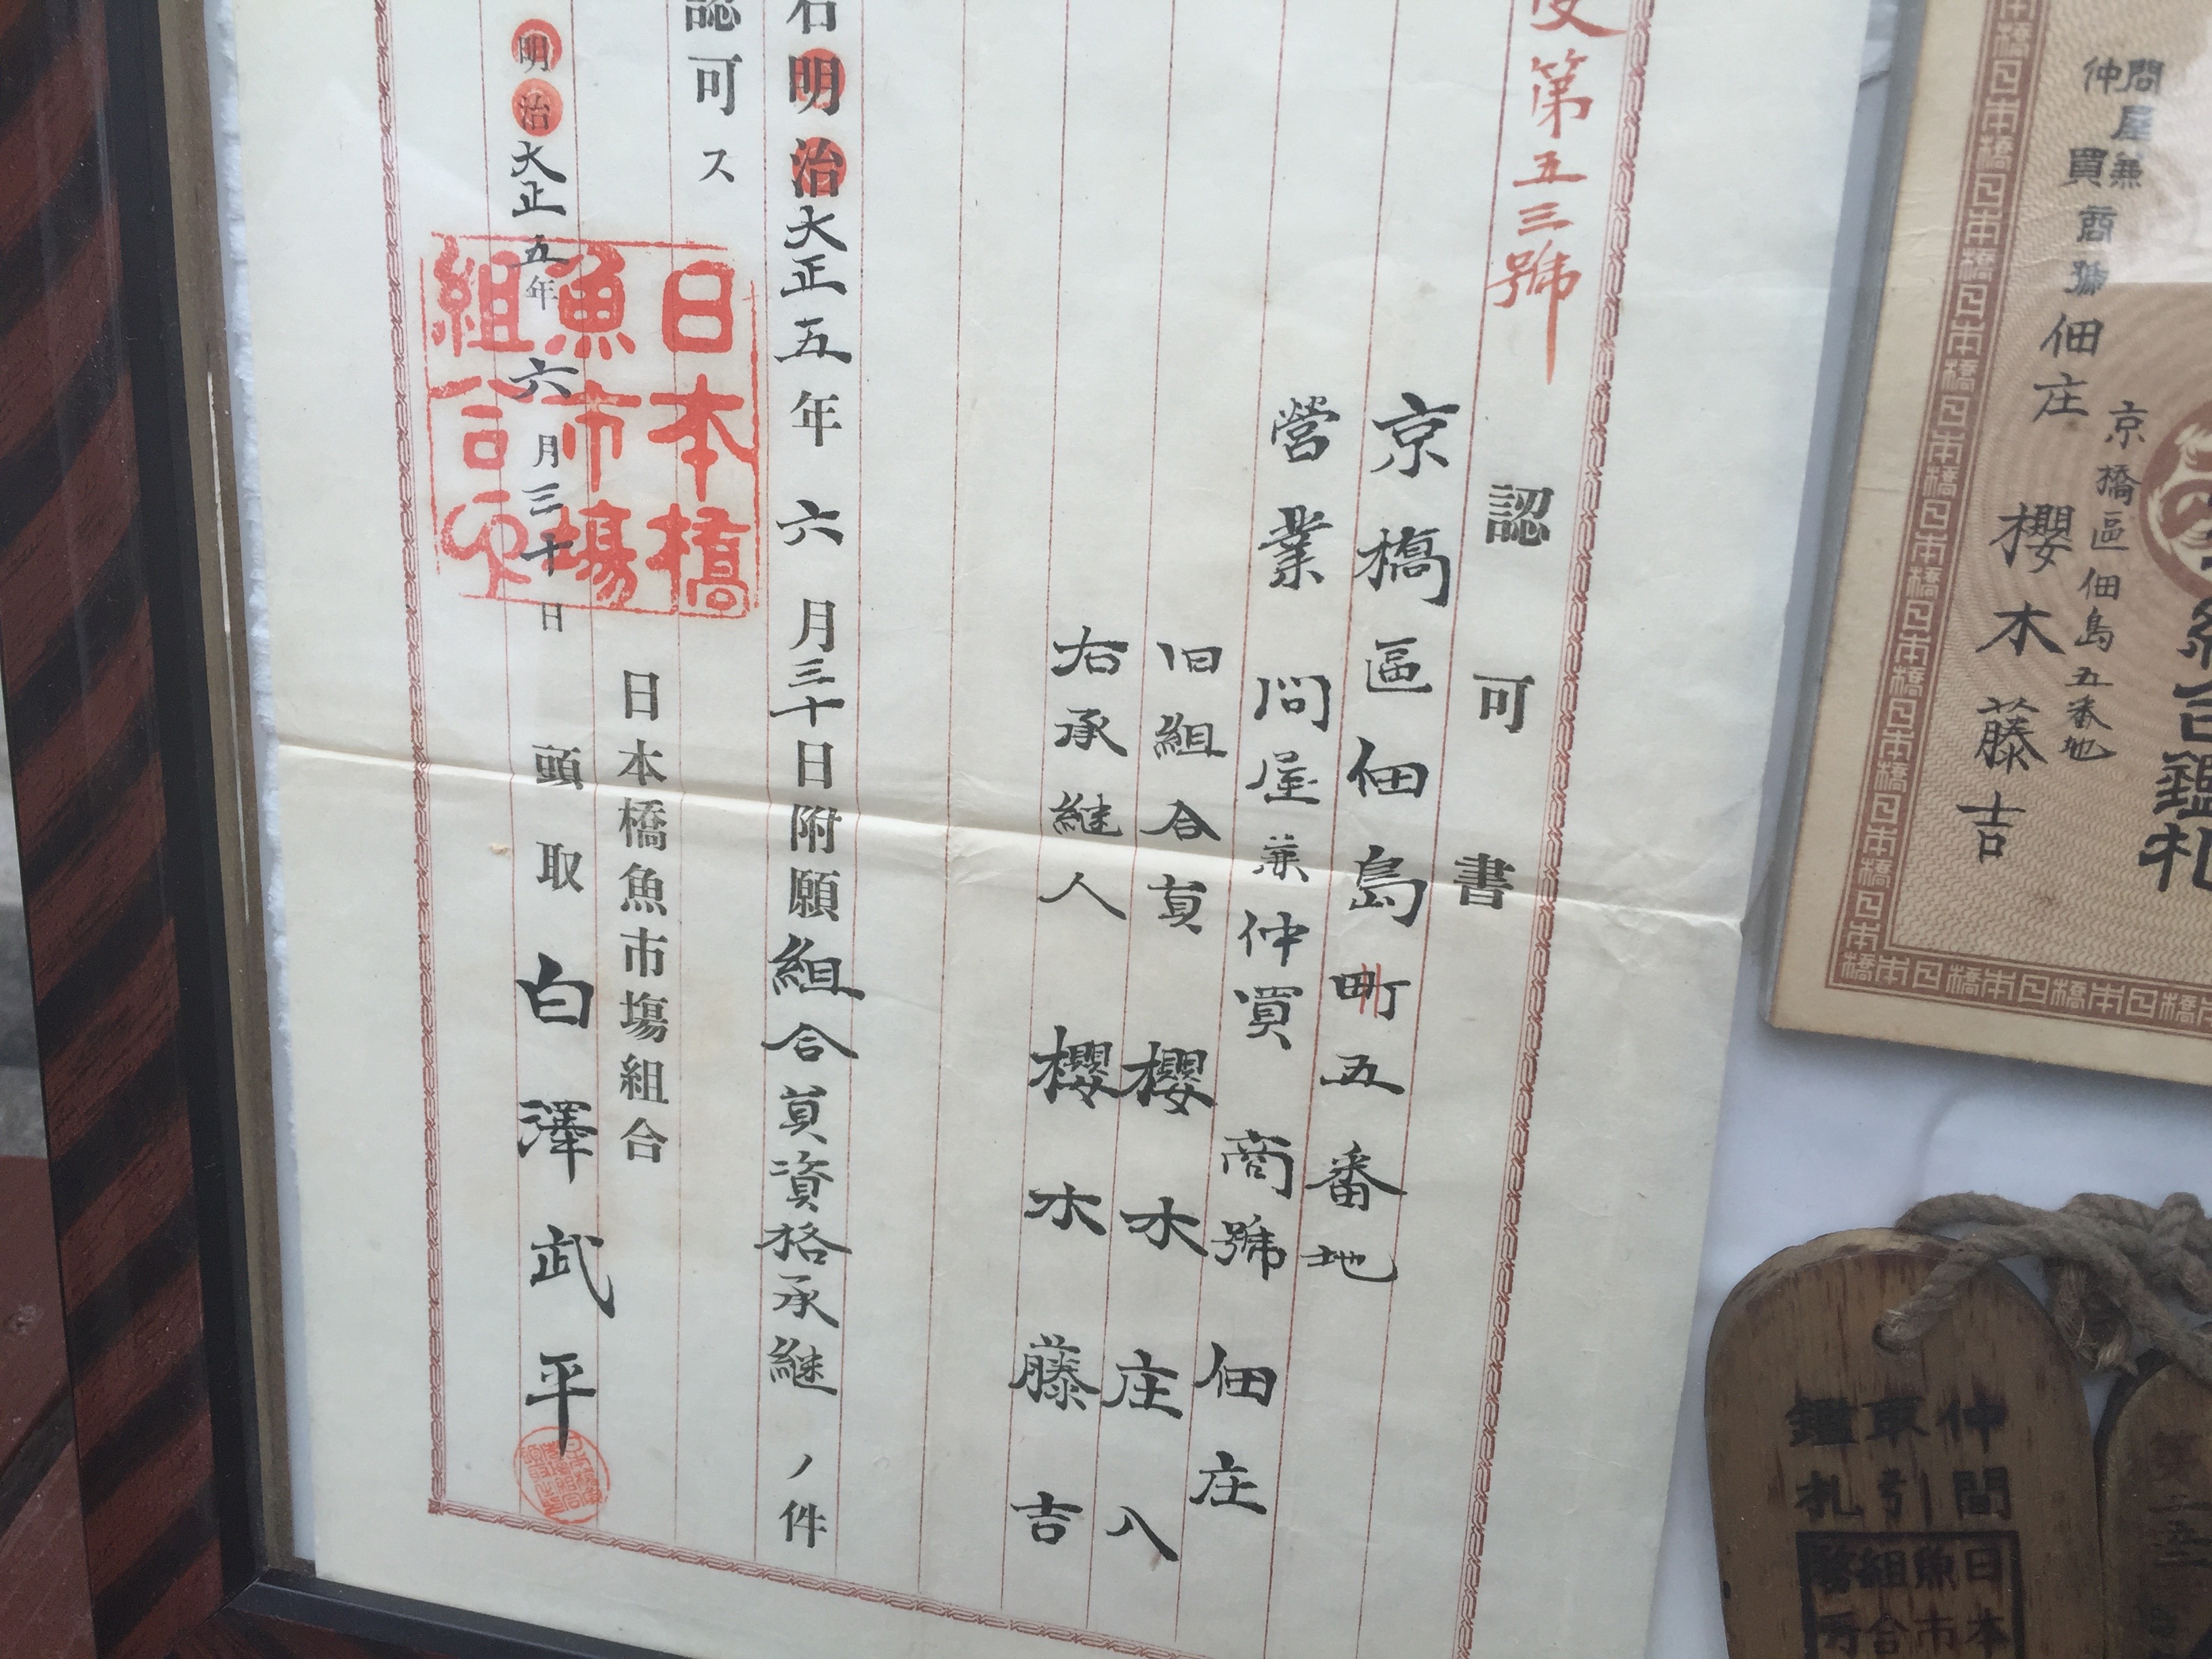 第五三號
認可書
京橋區佃島町五番地
營業 問屋兼仲買 商號 佃庄
旧組合員 櫻木庄八
右承継人 櫻木藤吉
右明治大正五年六月三十日附願組合員資格承継ノ件
認可ス
日本橋魚市場組合
明治大正五年六月三十日 頭取 白澤武平
日本橋
魚市場
組合印
京橋區佃島五番地
問屋兼仲買商號佃庄
櫻木藤吉
組合鑑札
仲間
取引
鑑札
日本
魚市
組合